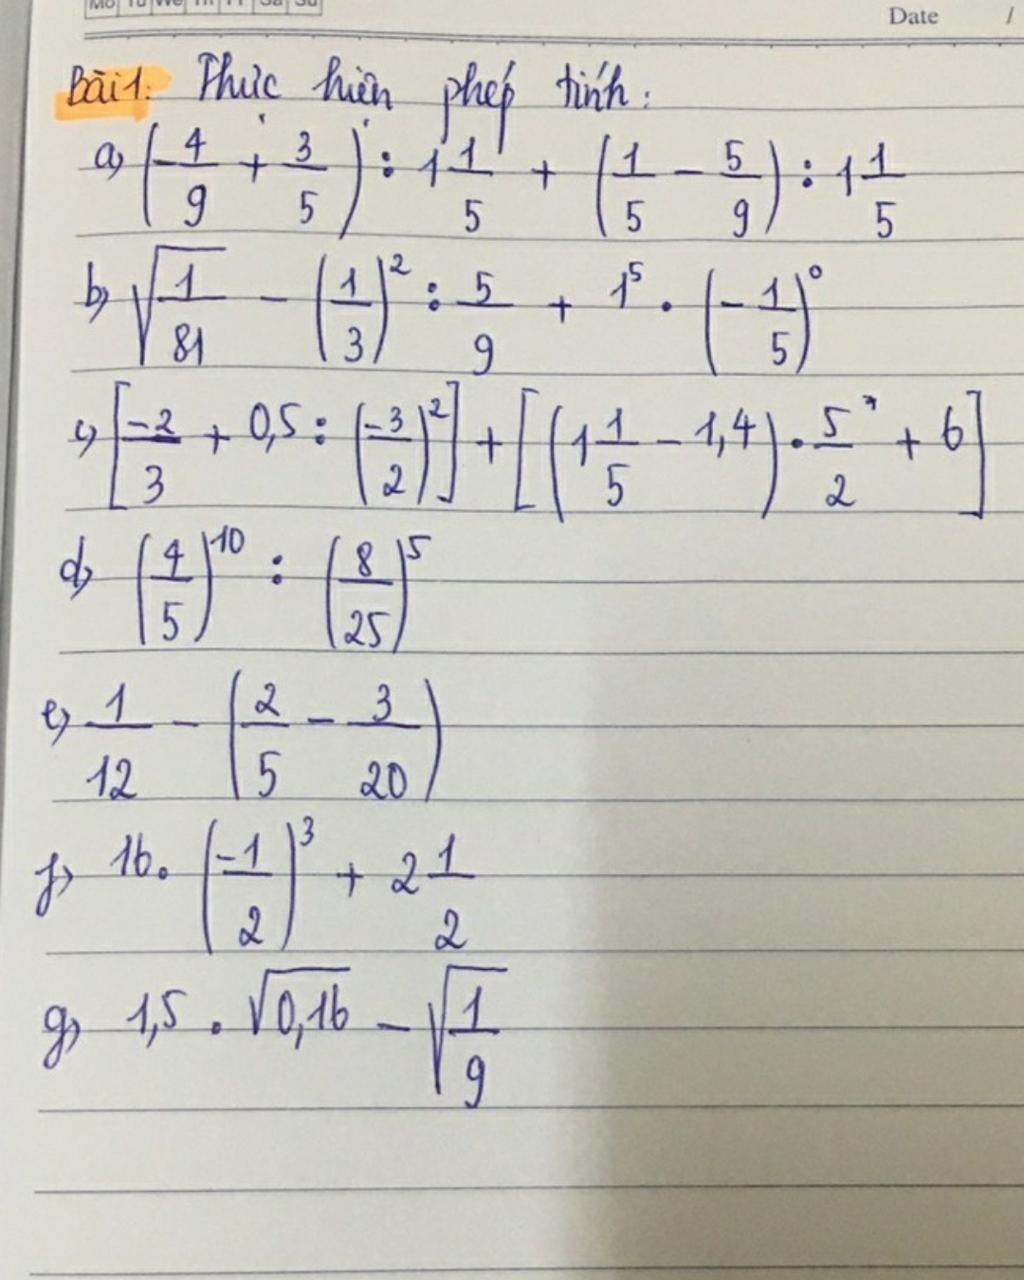 Mo Tu We Th Fr Sa Su
Date /
Bài 1: Thực hiện phép tính:
a) (4/9 + 3/5) : 1 1/5 + (1/5 - 5/9) : 1 1/5
b) √(1/81) - (1/3)² : 5/9 + 1⁵ . (-1/5)⁰
c) [-2/3 + 0,5 : (-3/2)²] + [(1 1/5 - 1,4) . 5/2 + 6]
d) (4/5)¹⁰ : (8/25)⁵
e) 1/12 - (2/5 - 3/20)
f) 16. (-1/2)³ + 2 1/2
g) 1,5 . √0,16 - √(1/9)